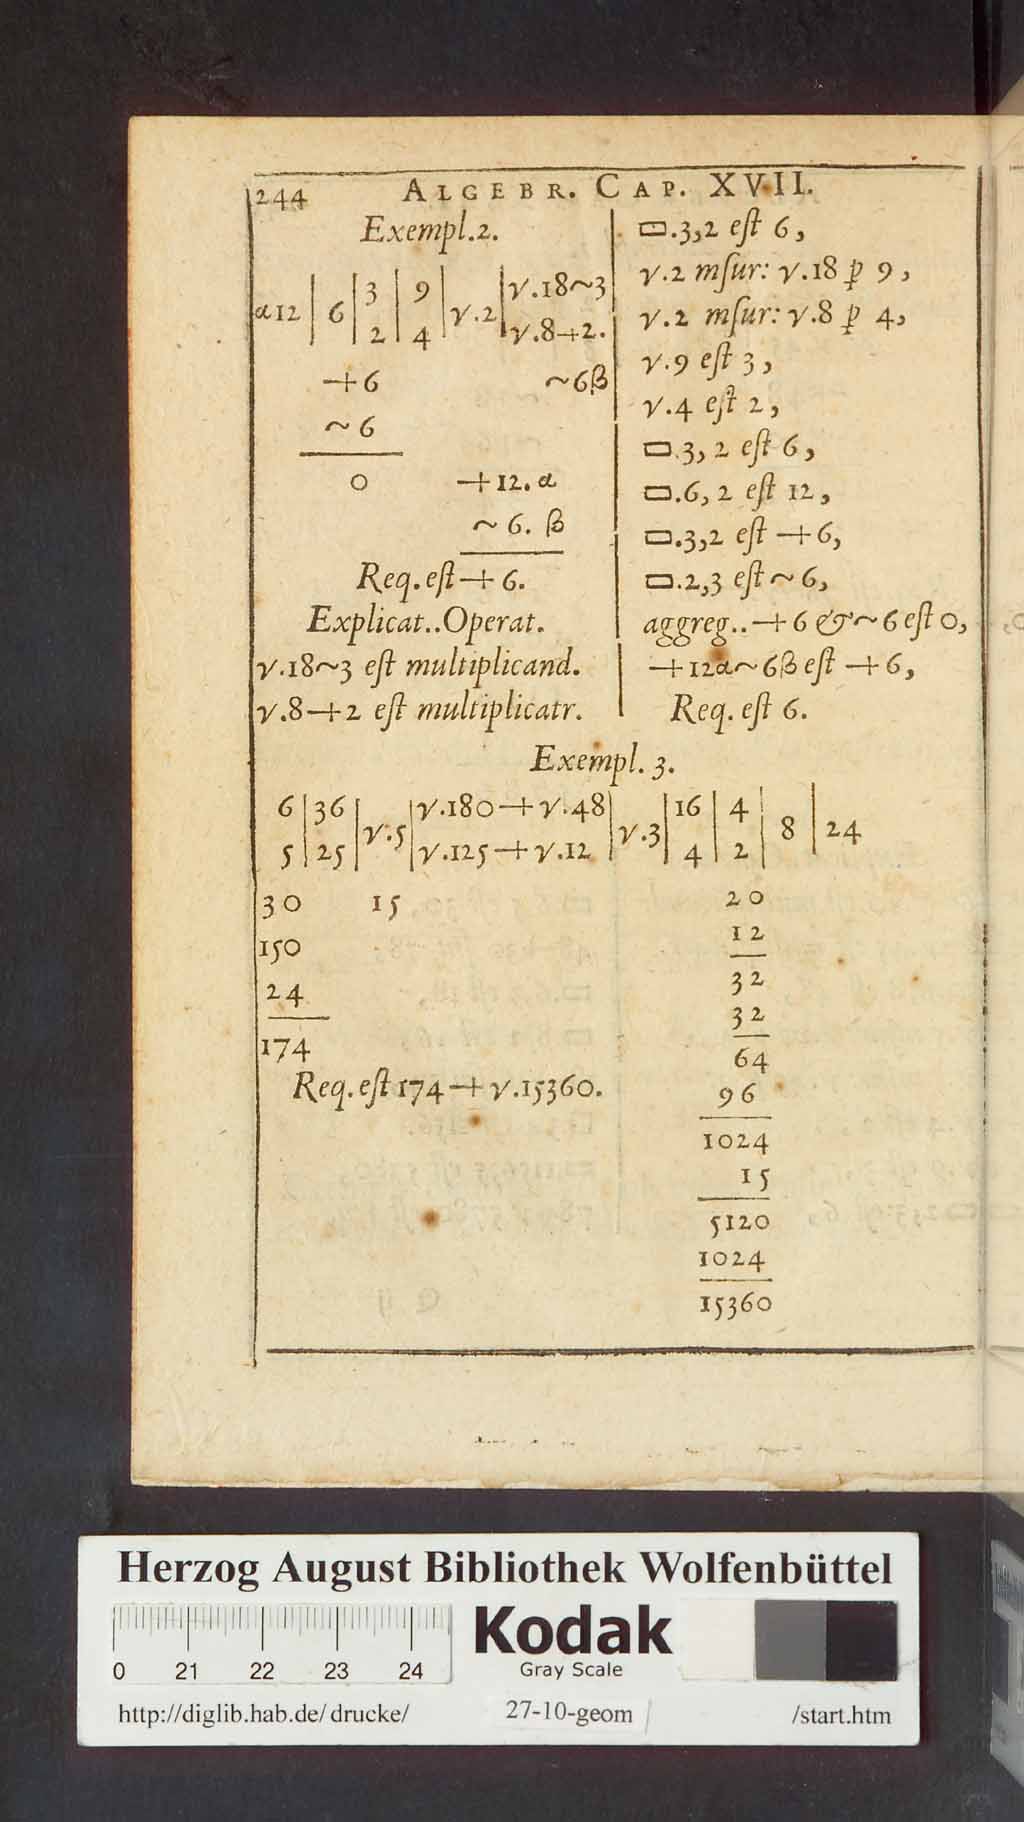 244 ALGEBR. CAP. XVII.
Exempl.2.
α12 | 6 | 3 | 9 | √.2 | √.18~3
2 | 4 | √.8+2.
+6 ~6β
~6
0 +12.α
~6.β
Req.eſt+6.
Explicat..Operat.
√.18~3 eſt multiplicand.
√.8+2 eſt multiplicatr.
▭.3,2 eſt 6,
√.2 mſur: √.18 ꝑ 9,
√.2 mſur: √.8 ꝑ 4,
√.9 eſt 3,
√.4 eſt 2,
▭.3,2 eſt 6,
▭.6,2 eſt 12,
▭.3,2 eſt +6,
▭.2,3 eſt ~6,
aggreg..+6 &~6 eſt 0,
+12α~6β eſt +6,
Req. eſt 6.
Exempl. 3.
6 | 36 | √.5 | √.180+√.48 | √.3 | 16 | 4 | 8 | 24
5 | 25 | √.125+√.12 | 4 | 2
30 15
150
24
174
Req.eſt 174+√.15360.
20
12
32
32
64
96
1024
15
5120
1024
15360
Herzog August Bibliothek Wolfenbüttel
0 21 22 23 24
Kodak
Gray Scale
http://diglib.hab.de/drucke/ 27-10-geom /start.htm